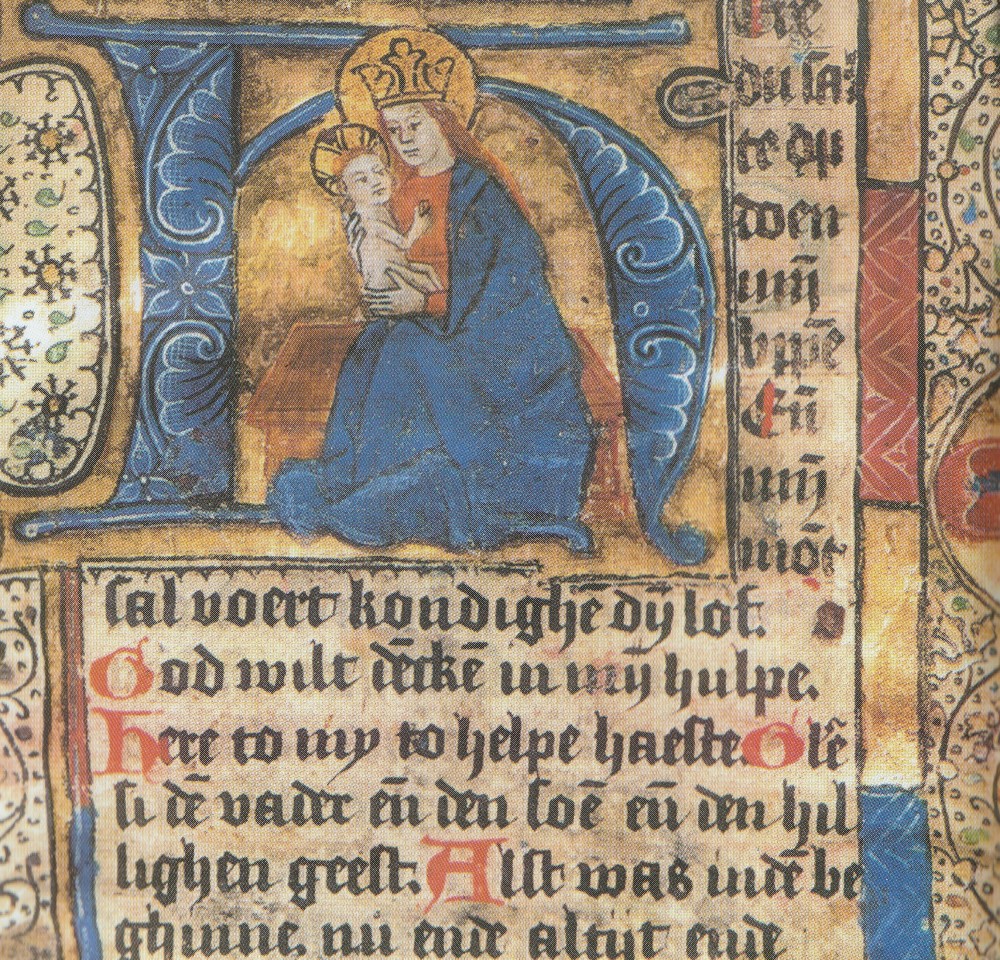 H
ere
du sal
te op
doen
mij̄
lippē
Eñ
mij̄
mōt
sal voert kondighe dij lof.
God wilt dēckē in mij hulpe.
here to my to helpe haeste.
si dē vader eñ den soē eñ den hil
lighen geest. Alst was indē be
ghinne. nu ende altijt ende